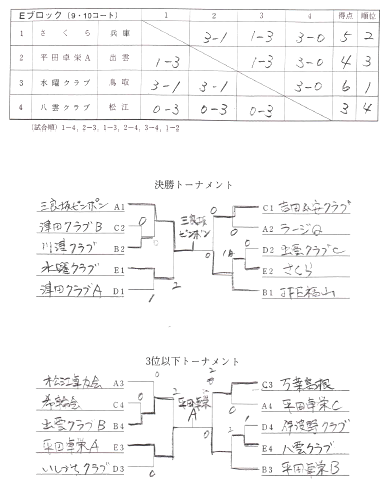 Eブロック（9・10コート） 1 2 3 4 得点 順位
1 さくら 兵庫 3-1 1-3 3-0 5 2
2 平田卓栄A 出雲 1-3 1-3 3-0 4 3
3 水曜クラブ 鳥取 3-1 3-1 3-0 6 1
4 八雲クラブ 松江 0-3 0-3 0-3 3 4
(試合順) 1－4, 2－3, 1－3, 2－4, 3－4, 1－2
決勝トーナメント
三良坂ピンポン A1
津田クラブB C2
B2
水曜クラブ E1
津田クラブA D1
三良坂ピンポン
C1 吉田クラブ
A2 ラージQ
D2 出雲クラブC
E2 さくら
B1 JFE福山
3位以下トーナメント
A3
C4
出雲クラブB B4
平田卓栄A E3
いしがきクラブ D3
平田卓栄A
C3 万葉島根
A4 平田卓栄C
D4 伊波野クラブ
E4 八雲クラブ
B3 平田卓栄B